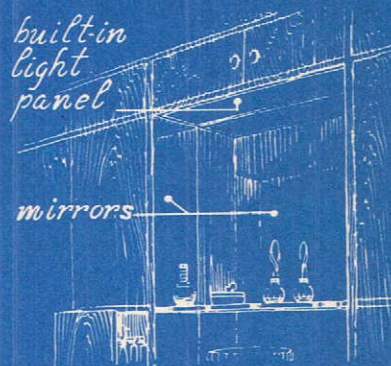 built-in
light
panel
mirrors